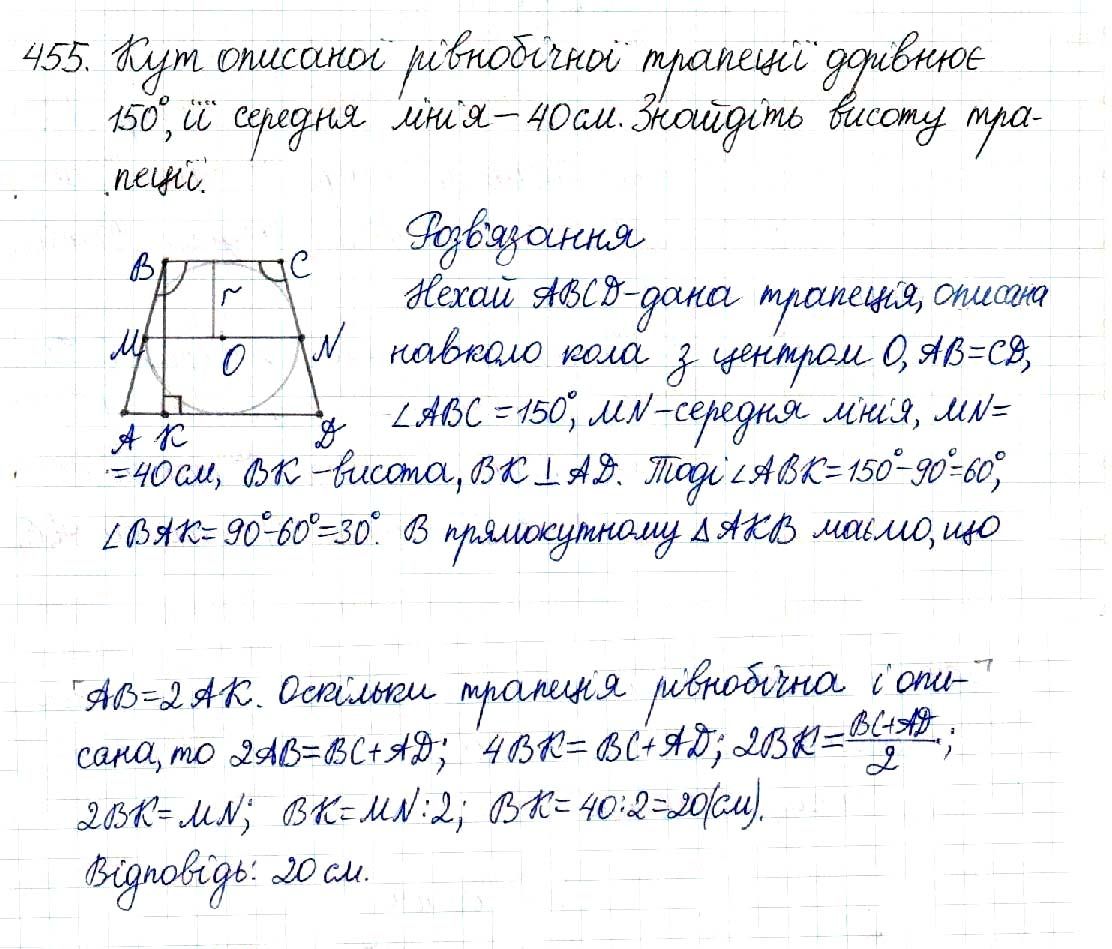 455. Кут описаної рівнобічної трапеції дорівнює
150°, її середня лінія – 40 см. Знайдіть висоту тра-
пеції.
Розв'язання
B
C
r
M
O
N
A
K
D
Нехай ABCD – дана трапеція, описана
навколо кола з центром O, AB=CD,
∠ABC = 150°, MN – середня лінія, MN=
=40 см, BK – висота, BK ⊥ AD. Тоді ∠ABK = 150° – 90° = 60°,
∠BAK = 90° – 60° = 30°. В прямокутному △AKB маємо, що
AB=2AK. Оскільки трапеція рівнобічна і опи-
сана, то 2AB=BC+AD; 4BK = BC+AD; 2BK = (BC+AD)/2;
2BK = MN; BK = MN:2; BK = 40:2=20(см).
Відповідь: 20 см.